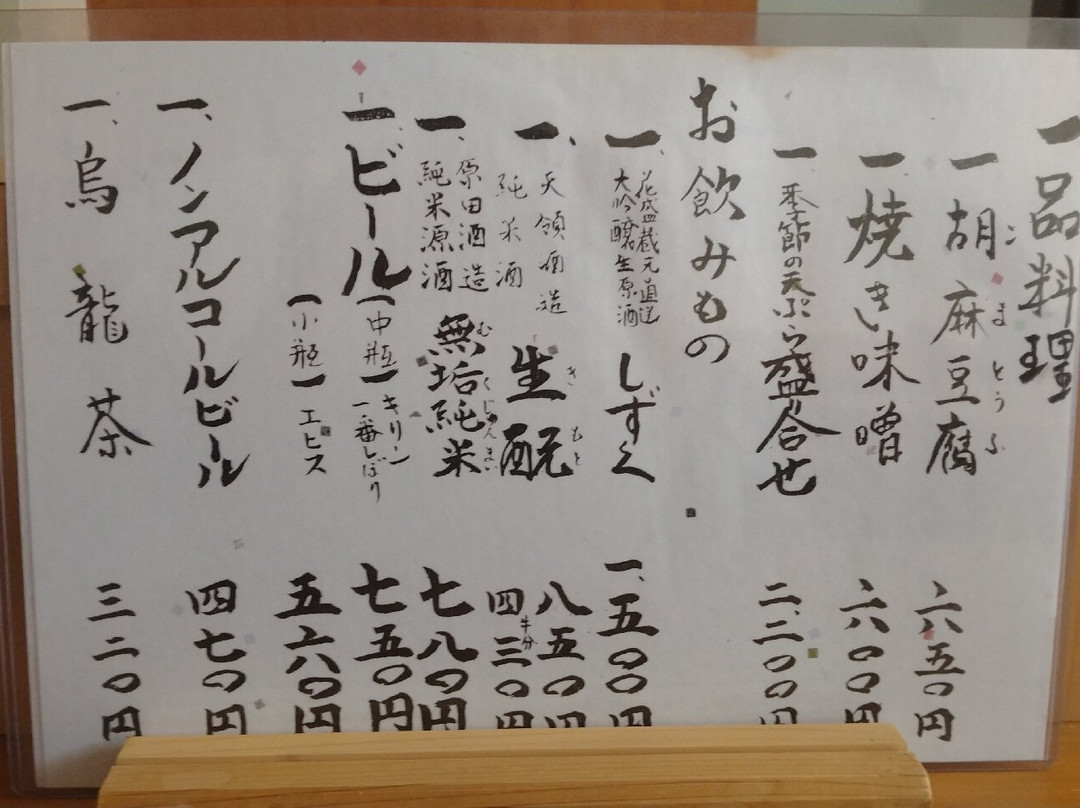 一品料理
一、胡麻豆腐 六五〇円
ごまとうふ
一、焼き味噌 六〇〇円
一、季節の天ぷら盛合せ 二、二〇〇円
お飲みもの
一、花盛蔵元直送
大吟醸生原酒 しずく 一、五〇〇円
一、天領酒造
純米酒 生酛 八五〇円
きもと
半分 四三〇円
一、原田酒造
純米源酒 無垢純米 七八〇円
むくじゅんまい
一、ビール (中瓶) キリン一番しぼり 七五〇円
(小瓶) エビス 五六〇円
一、ノンアルコールビール 四七〇円
一、烏龍茶 三二〇円